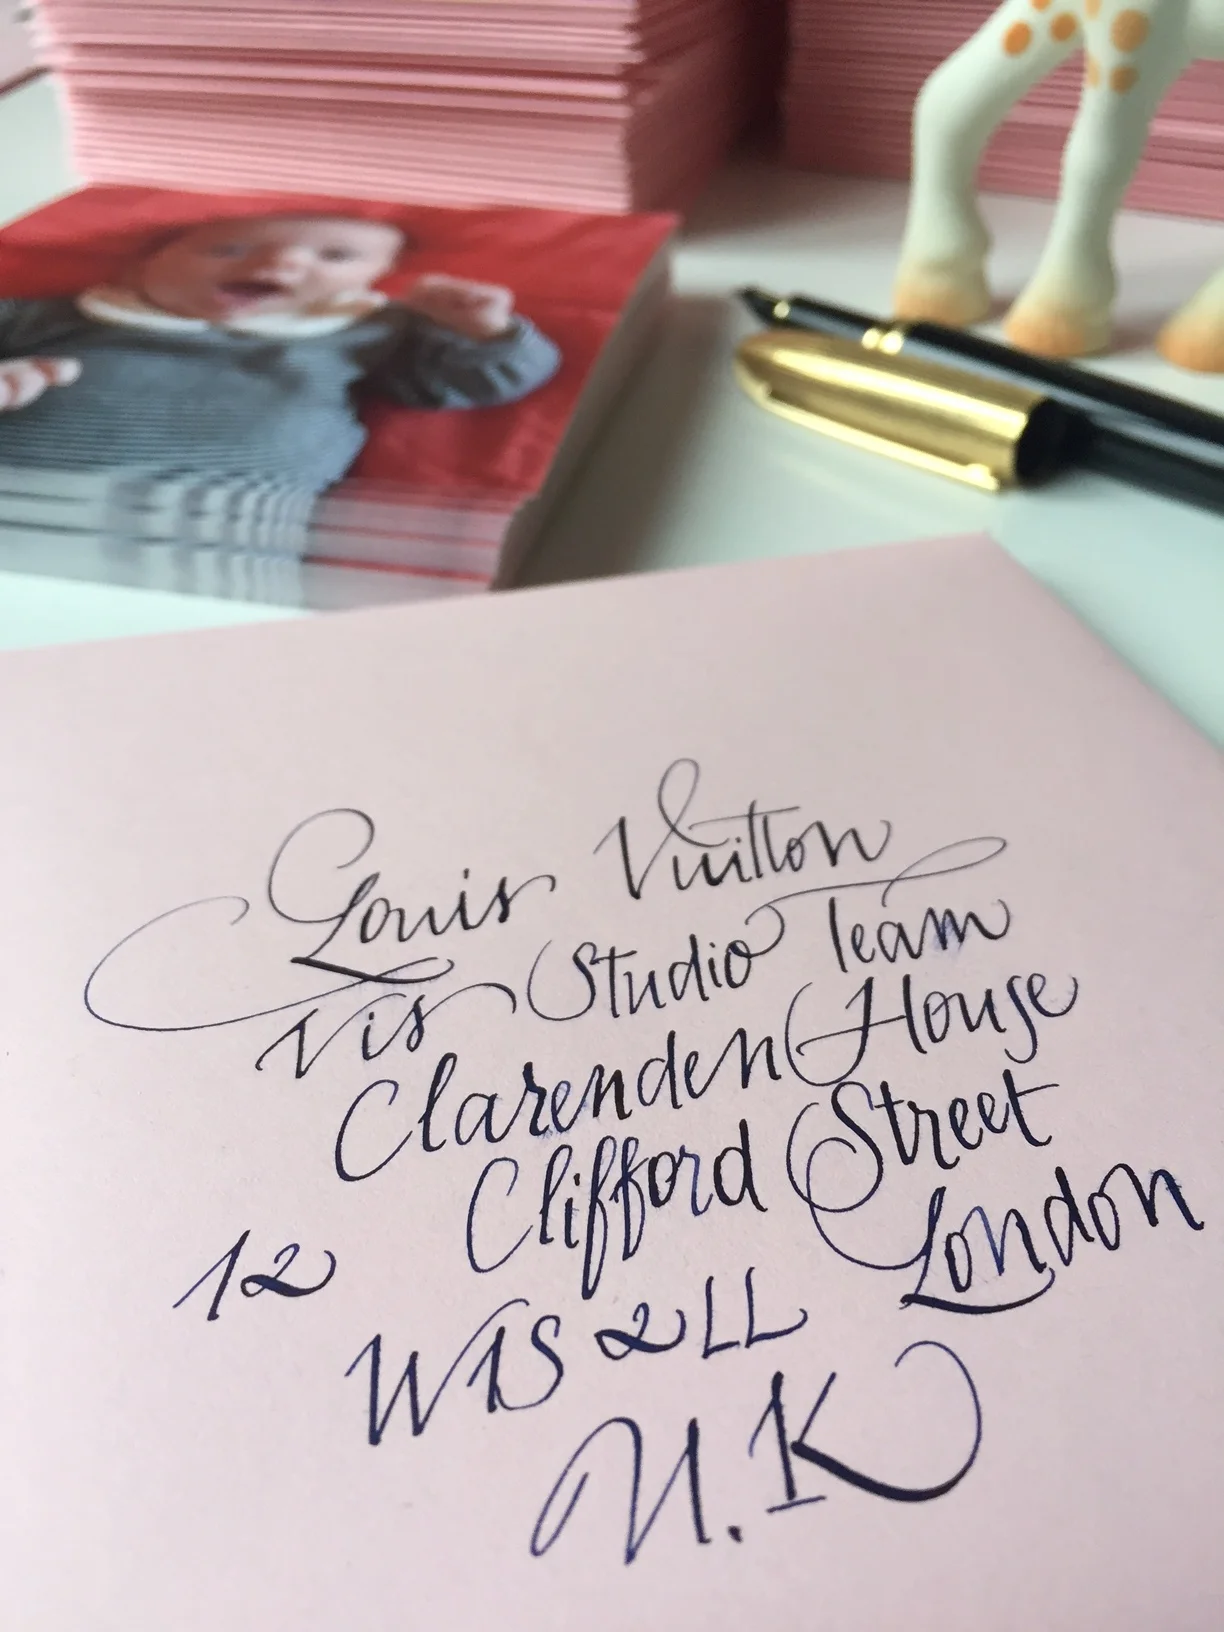 Louis Vuitton
Vis Studio Team
Clarenden House
12 Clifford Street
W1S 2LL London
U.K